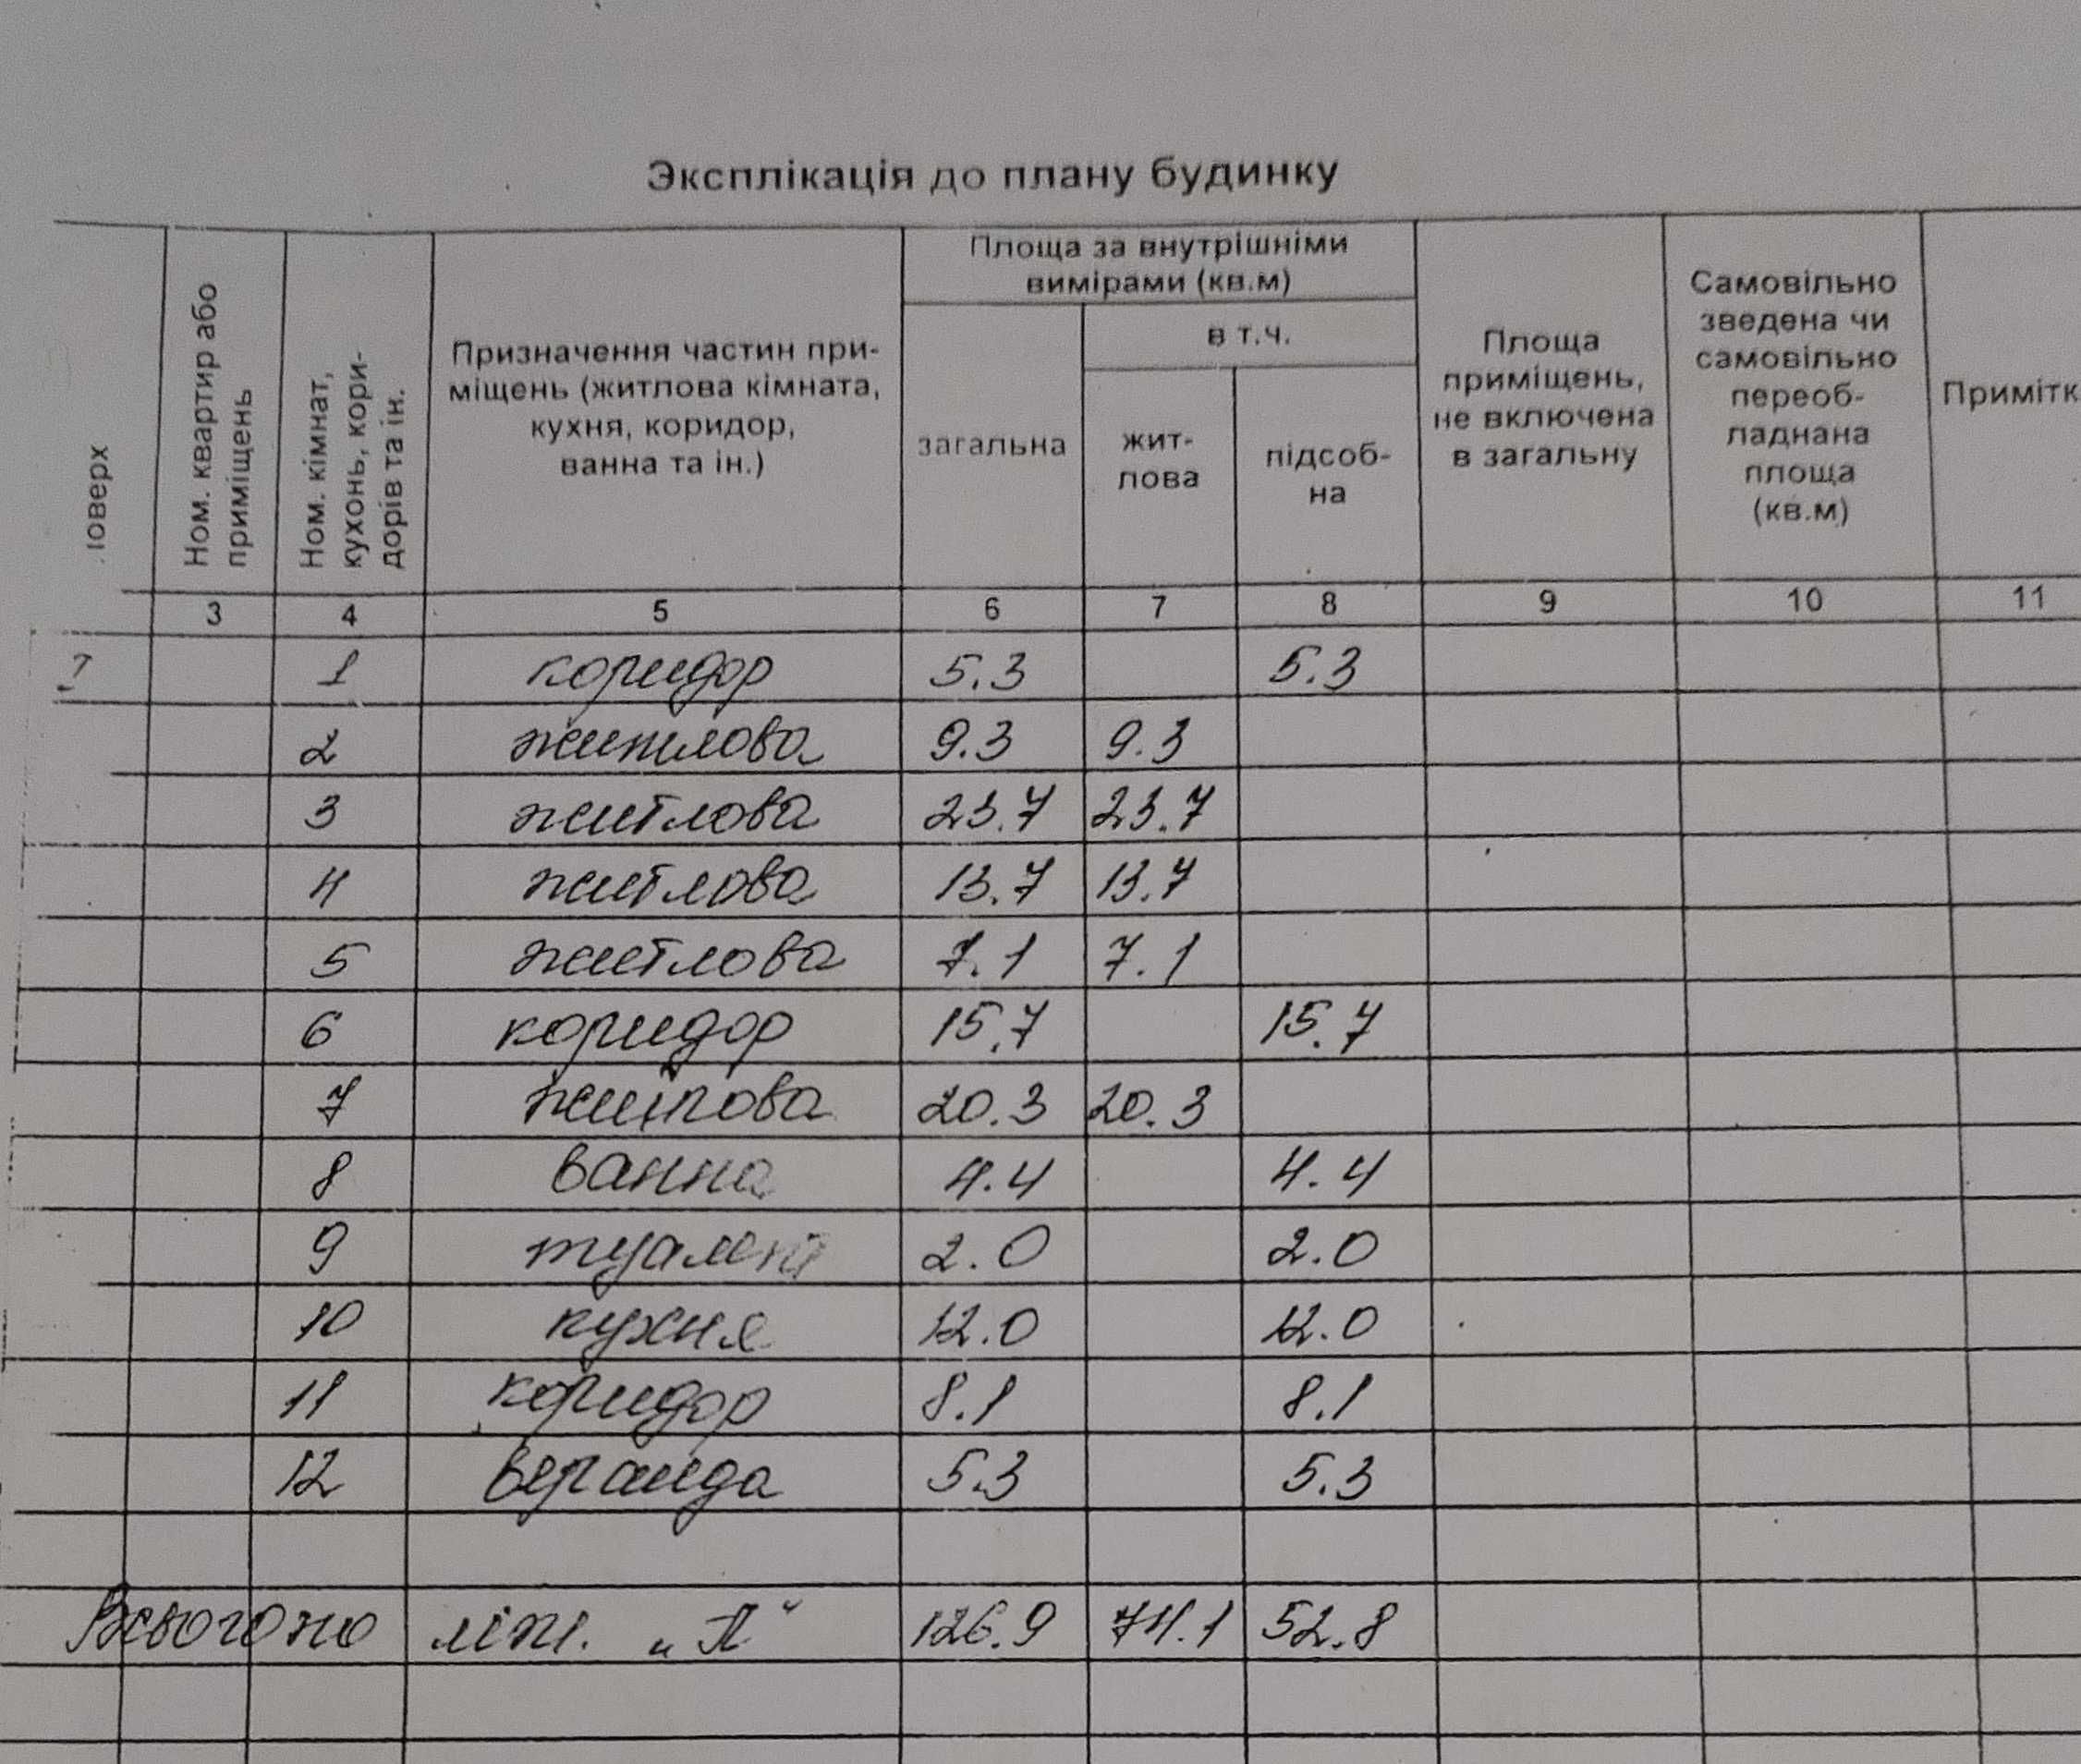 Эксплікація до плану будинку
Ном. квартир або приміщень
Ном. кімнат, кухонь, кори-дорів та ін.
Призначення частин при-
міщень (житлова кімната,
кухня, коридор,
ванна та ін.)
Площа за внутрішніми
вимірами (кв.м)
загальна
в т.ч.
жит-
лова
підсоб-
на
Площа
приміщень,
не включена
в загальну
Самовільно
зведена чи
самовільно
переоб-
ладнана
площа
(кв.м)
Примітк
3 4 5 6 7 8 9 10 11
1 коридор 5.3 5.3
2 житлова 9.3 9.3
3 житлова 23.7 23.7
4 житлова 13.7 13.7
5 житлова 7.1 7.1
6 коридор 15.7 15.7
7 житлова 20.3 20.3
8 ванна 4.4 4.4
9 туалет 2.0 2.0
10 кухня 12.0 12.0
11 коридор 8.1 8.1
12 веранда 5.3 5.3
Всього по літ. 126.9 74.1 52.8